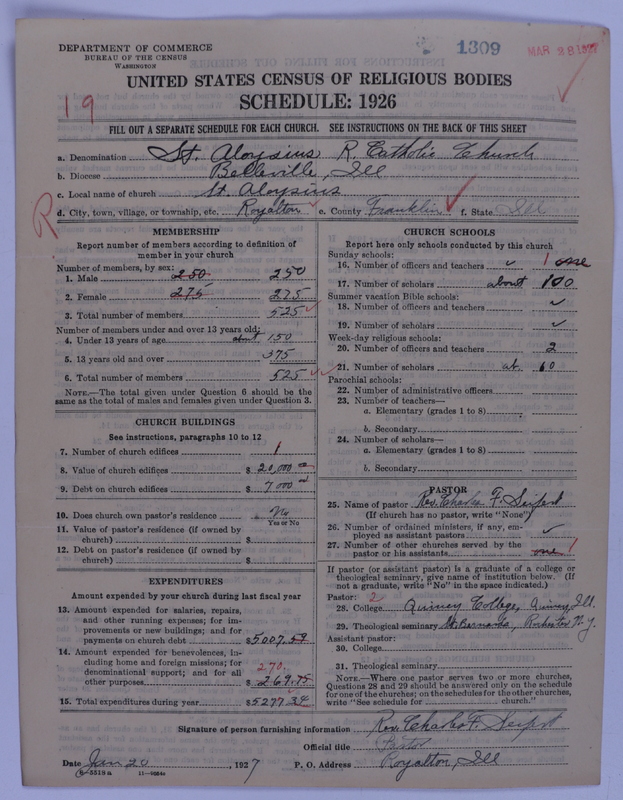 DEPARTMENT OF COMMERCE
BUREAU OF THE CENSUS
WASHINGTON
1309
MAR 28 1927
UNITED STATES CENSUS OF RELIGIOUS BODIES
SCHEDULE: 1926
19
FILL OUT A SEPARATE SCHEDULE FOR EACH CHURCH. SEE INSTRUCTIONS ON THE BACK OF THIS SHEET
a. Denomination St. Aloysius R. Catholic Church
b. Diocese Belleville, Ill
c. Local name of church St. Aloysius
d. City, town, village, or township, etc. Royalton e. County Franklin f. State Ill
R
MEMBERSHIP
Report number of members according to definition of
member in your church
Number of members, by sex:
1. Male 250 250
2. Female 275 275
3. Total number of members 525
Number of members under and over 13 years old:
4. Under 13 years of age about 150
5. 13 years old and over 375
6. Total number of members 525
NOTE.—The total given under Question 6 should be
same as the total of males and females given under Question 3.
CHURCH BUILDINGS
See instructions, paragraphs 10 to 12
7. Number of church edifices 1
8. Value of church edifices $ 20,000
9. Debt on church edifices $ 7000
10. Does church own pastor's residence No
Yes or No
11. Value of pastor's residence (if owned by
church) $
12. Debt on pastor's residence (if owned by
church) $
EXPENDITURES
Amount expended by your church during last fiscal year
13. Amount expended for salaries, repairs,
and other running expenses; for im-
provements or new buildings; and for
payments on church debt $5007.59
14. Amount expended for benevolences, in-
cluding home and foreign missions; for
denominational support; and for all
other purposes 270. $ 269.75
15. Total expenditures during year $5277.34
CHURCH SCHOOLS
Report here only schools conducted by this church
Sunday schools:
16. Number of officers and teachers 1 one
17. Number of scholars about 100
Summer vacation Bible schools:
18. Number of officers and teachers
19. Number of scholars
Week-day religious schools:
20. Number of officers and teachers 2
21. Number of scholars ab. 60
Parochial schools:
22. Number of administrative officers
23. Number of teachers—
a. Elementary (grades 1 to 8)
b. Secondary
24. Number of scholars—
a. Elementary (grades 1 to 8)
b. Secondary
PASTOR
25. Name of pastor Rev. Charles F. Seifert
(If church has no pastor, write "None")
26. Number of ordained ministers, if any, em-
ployed as assistant pastors
27. Number of other churches served by the
pastor or his assistants one 1
If pastor (or assistant pastor) is a graduate of a college or
theological seminary, give name of institution below. (If
not a graduate, write "No" in the space indicated.)
Pastor: 2
28. College Quincy College, Quincy, Ill.
29. Theological seminary St. Bernards, Rochester N.Y.
Assistant pastor:
30. College
31. Theological seminary
NOTE.—Where one pastor serves two or more churches,
Questions 28 and 29 should be answered only on the schedule
for one of the churches; on the schedules for the other churches,
write "See schedule for church."
Signature of person furnishing information Rev. Charles F. Seifert
Official title Pastor
Date Jan 20, 1927 P. O. Address Royalton, Ill